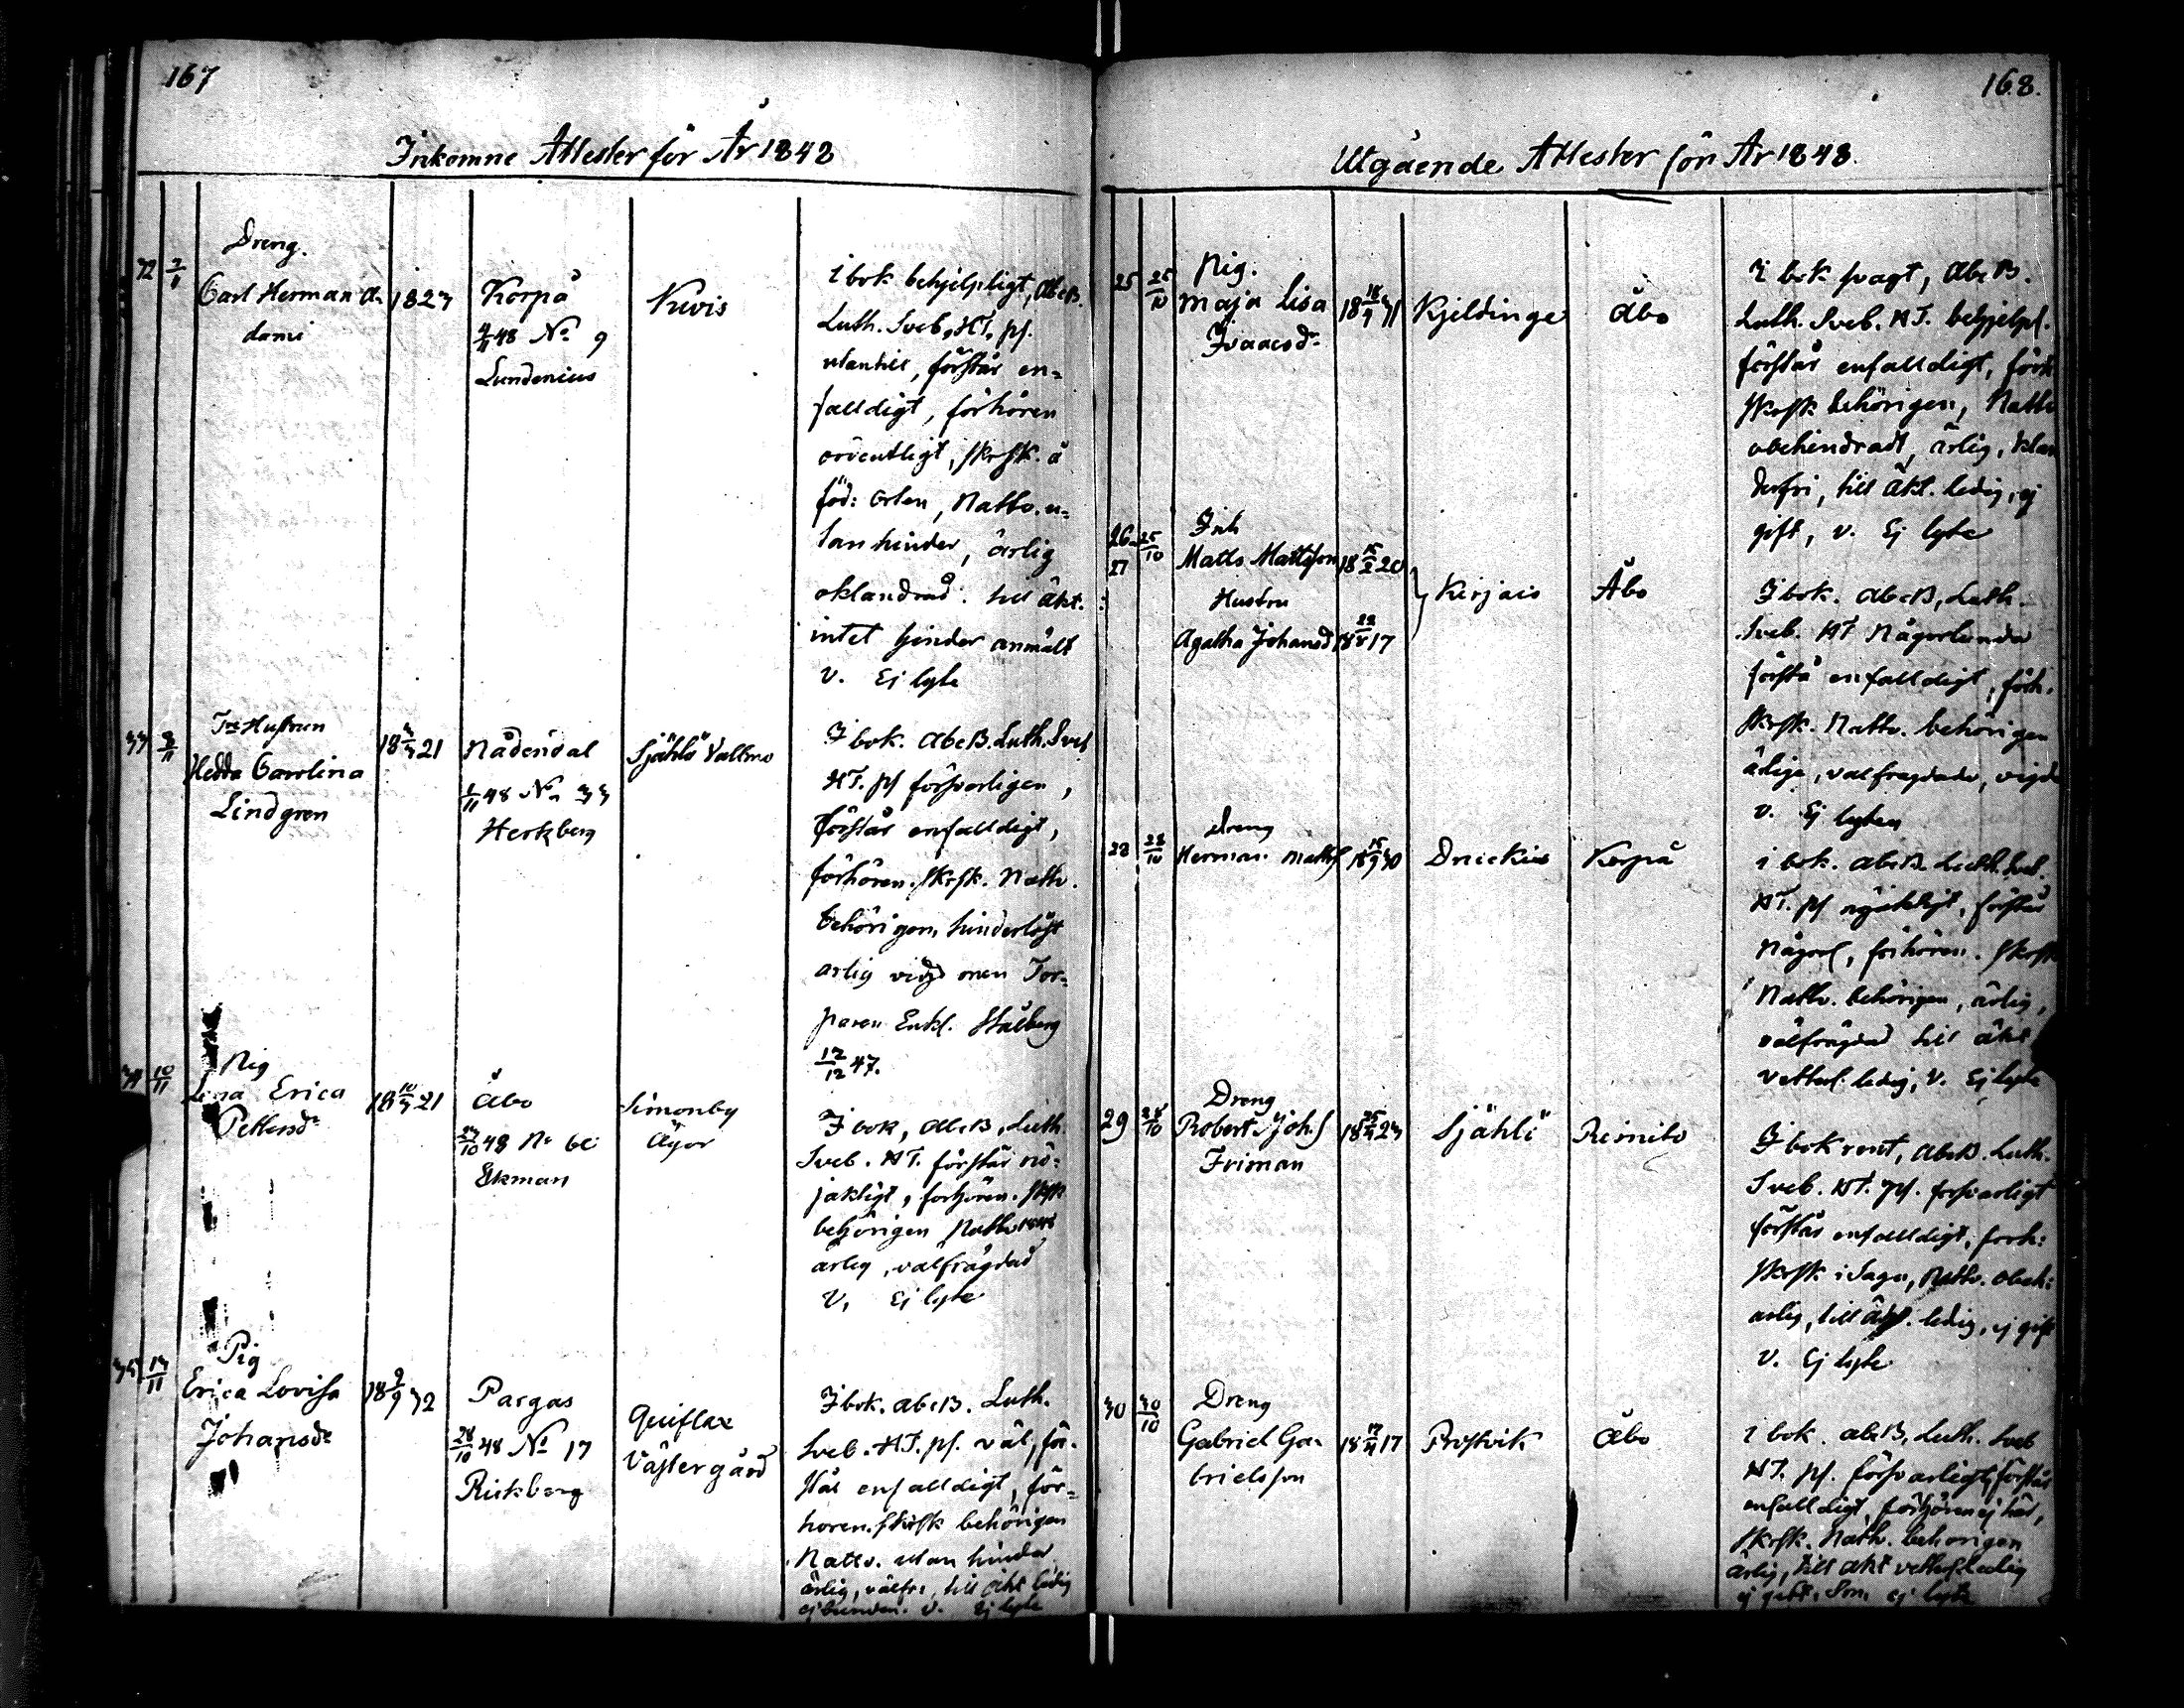 167
Inkomne Attester för År 1848
32 2/11
Dreng.
Carl Herman A-
dami
1823
Korpå
4/11 48 No 9
Lundenius
Kivis
i bok behjelpligt, AbcB.
Luth. Sveb. HT. ps.
utantill, förstår en-
falldigt, förhören
ordentligt, skrsk. å
föd: orten, Nattv. u-
tan hinder, ärlig
oklandrad. till äkt.
intet hinder anmält
v. Ej lyte
33 3/11
Hustrun
Hedda Carolina
Lindgren
18 3/3 21
Nådendal
1/11 48 No 33
Herkberg
Sjählö Vallmo
I bok. AbcB. Luth. Sveb
HT. ps försvarligen,
förstår enfalldigt,
förhören. skrsk. Nattv.
behörigen, hinderlöst
arlig vigd men Tor-
paren Enkl. Stålberg
17/12 47.
34 10/11
Pig
Lina Erica
Pettersdr
18 10/3 21
Åbo
48 No
Ekman
Simonby
Ägor
I bok, AbcB, Luth.
Sveb. HT. förstår nö-
jaktigt, forhören. skrsk
behörigen Nattv 1848
arlig, välfrägdad
V, Ej lyte
35 13/11
Pig
Erica Lovisa
Johansdr
18 9/9 32
Pargas
28/10 48 No 17
Rickberg
Qviflax
Västergård
I bok. AbcB. Luth.
Sveb. HT. ps. väl, för-
står enfalldigt, för-
horen. skrsk behörigen
Nattv. utan hinder
ärlig, välfr., till äkt ledig
ej bunden. v. Ej lyte
168.
Utgående Attester för År 1848.
25 25/10
Pig.
Maja Lisa
Isaacsdr
18 18/9 31
Kjeldinge
Åbo
I bok svagt, AbcB.
Luth. Sveb. HT. behjelpl.
förstår enfalldigt, förh
skrsk behörigen, Nattv
obehindradt, ärlig, klan
derfri, till äkt. ledig, ej
gift, v. Ej lyte
26- 25/10
27
Inh
Matts Mattsson 18 15/2 20
Hustru
Agatha Johansd 18 22/8 17
Kirjais
Åbo
I bok. AbcB, Luth.
Sveb. HT Någorlunda
förstå enfalldigt, förh.
skrsk. Nattv. behörigen
ärliga, valfragdade, vigde
v. Ej lyten
28 28/10
Dreng
Herman Matts
18 15/9 30
Korpå
i bok. AbcB. Luth. Sveb.
HT. ps nöjaktigt, förstår
Någorl, förhören. skrsk
Nattv. behörigen, ärlig,
välfrägdad till äkt
vetterl. ledig, v. Ej lyte
29 28/10
Dreng
Robert Joh.s
Friman
18 25/4 23
Sjählö
Rimito
I bok rent, AbcB. Luth.
Sveb. HT. ps. forsvarligt
förstår enfalldigt, forh:
skrsk i Sagu, Nattv. obeh:
arlig, till äkt. ledig, ej gift
V. Ej lyte
30 30/10
Dreng
Gabriel Ga-
brielsson
18 17/4 17
Prostvik
Åbo
i bok. abcB, Luth. Sveb
HT. ps. försvarligt, förstår
enfalldigt, förhören ej här,
skrsk. Nattv. behorigen
ärlig, till äkt vetterl. ledig
ej gift. ej lyte